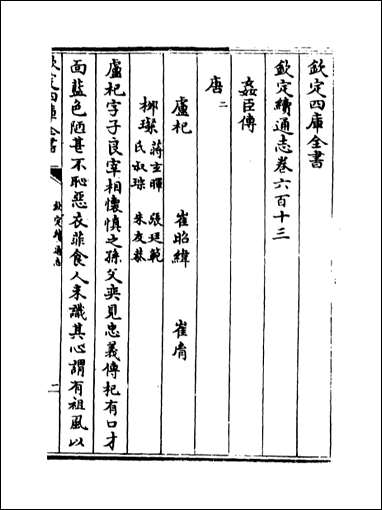 欽定四庫全書
欽定續通志卷六百十三
姦臣傳
唐二
盧𣏌 崔昭緯 崔𦙍
柳璨 蔣𤣥暉 張廷範 氏叔琮 朱友恭
盧𣏌字子良宰相懷慎之孫父奕見忠義傳𣏌有口才
面藍色陋甚不恥惡衣菲食人未識其心謂有祖風以
欽定四庫全書
欽定續通志
一